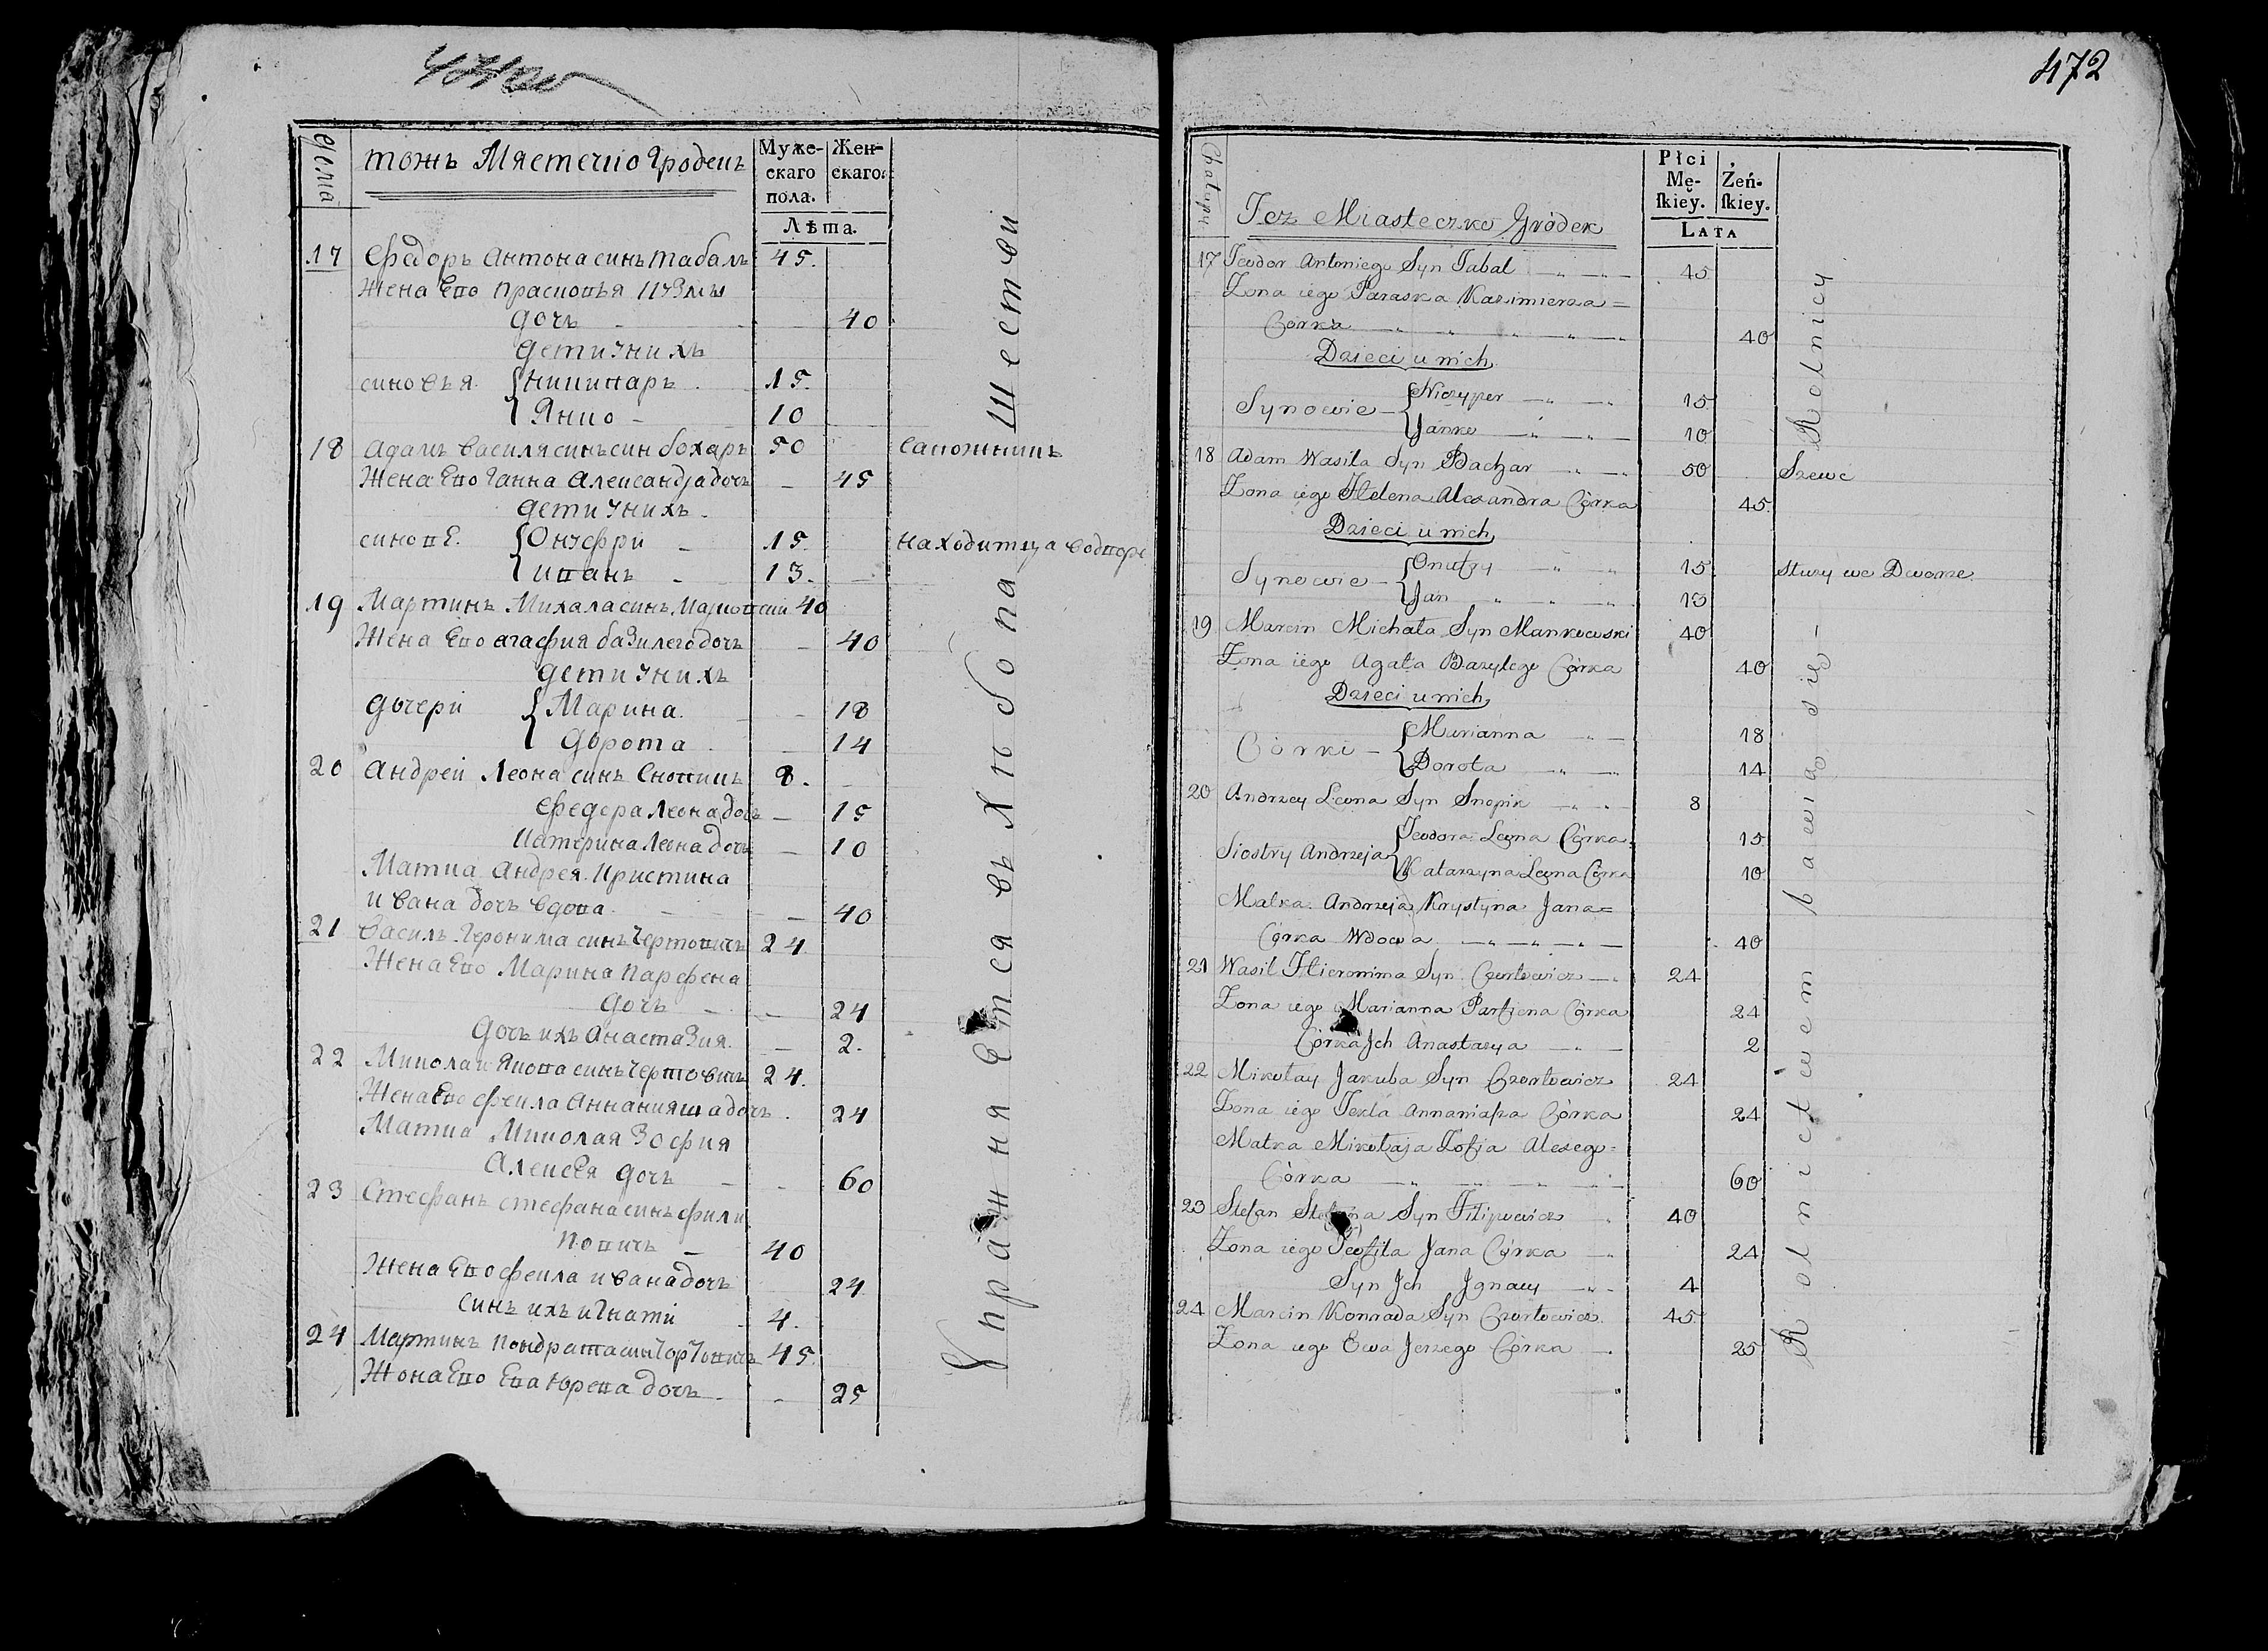 Чѣсла
тожъ Мястечко Гродекъ
Муже-
скаго
пола.
Жен-
скаго.
Лѣта.
17 Федоръ Антона синъ Табалъ 45.
Жена Его Прасковья
дочь 40
дети уних
синовъя Никипаръ 15.
Янко 10
18 Адамъ Василя синъ син бохаръ 50 сапожникъ
Жена Его Ганна Александра дочъ 45
дети унихъ
синове. Онуфри 15. находитца водворе
иванъ 13.
19 Мартинъ Михала синъ 40
Жена Его агафия базилего дочъ 40
дети унихъ
дочери Марина. 18
дорота 14
20 андреи Леона синъ Снопикъ 8.
Федера Леона дочъ 15
Катерина Леона дочъ 10
Матка Андрея Кристина
ивана дочъ вдова 40
21 Василь Геронима синъ Чертовичъ 24
Жена Его Марина Парфена
дочъ 24
дочъ ихъ анастазия. 2.
22 Миколаи Якова синъ Чертовичъ 24.
Жена Его фекла Аннанияша дочъ. 24
Матка Миколая Зофия
Алексея дочъ 60
23 Стефанъ стефана синъ фили
повичъ 40
Жена Его фекла ивана дочъ 24
синъ ихъ игнаті 4.
24 Мартинъ Кондрата синъ Чортовичъ 45.
Жона Его Ева Юрева дочъ 25
Упражняется въ Хлюбопашестви
472
Chałupy
Tez Miasteczko Gródek
Płci
Mę-
ſkiey.
Żeń-
ſkiey.
LATA
17 Teodor Antoniego Syn Tabal 45
Zona iego Paraska Kazimierza=
Corka 40
Dzieci u nich
Synowie Niczyper 15
Janko 10
18 Adam Wasila Syn Bachar 50 Szewc
Zona iego Helena Alexandra Córka 45
Dzieci u nich
Synowie Onufry 15 służy we Dworze
Jan 13
19 Marcin Michała Syn Mankowski 40
Zona iego Agata Bazylego Córka 40
Dzieci u nich
Córki Marianna 18
Dorota 14
20 Andrzey Leona Syn Snopik 8
Siostry Andrzeja Teodora Leona Córka 15
Katarzyna Leona Córka 10
Matka Andrzeja Krystyna Jana=
Córka Wdowa 40
21 Wasil Hieronima Syn Czortowicz 24
Zona iego Marianna Parfiena Córka 24
Córka Jch Anastazya 2
22 Mikołay Jakuba Syn Czortowicz 24
Zona iego Tekla Annaniasza Córka 24
Matka Mikołaja Zofja Alexego=
Córka 60
23 Stefan Stefana Syn Filipowicz 40
Zona iego Teofila Jana Córka 24
Syn Jch Jgnacy 4
24 Marcin Konrada Syn Czortowicz 45
Zona iego Ewa Jerzego Córka 25
Rolnictwem bawią się – Rolnicy